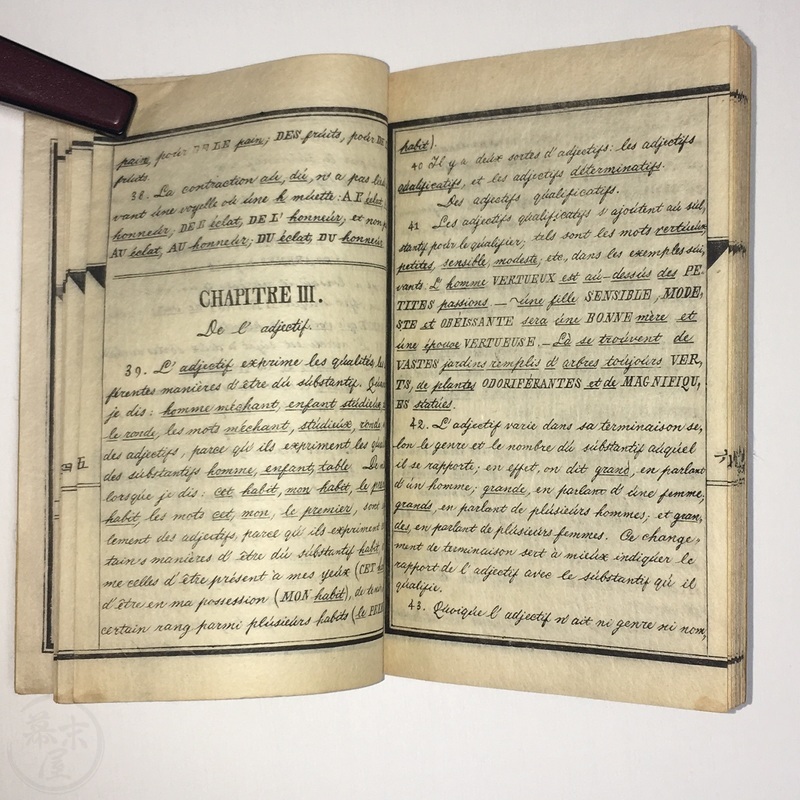 pain, pour DE LE pain; DES fruits, pour DE
fruits.
38. La contraction au, du, n'a pas lieu
vant une voyelle ou une h muette: A L'éclat
honneur, DE L'éclat, DE L' honneur; et non
AU éclat, AU honneur, DU éclat, DU honneur
CHAPITRE III.
De l' adjectif.
39. L' adjectif exprime les qualités, les
férentes manières d'être du substantif. Quand
je dis: homme méchant, enfant studieux
le ronde, les mots méchant, studieux, ronde
des adjectifs, parce qu' ils expriment les qua
des substantifs homme, enfant, table. De
lorsque je dis: cet habit, mon habit, le pre
habit, les mots cet, mon, le premier, sont
lement des adjectifs, parce qu' ils expriment
tains manières d' être du substantif habit
me celles d' être présent a mes yeux (CET
d'être en ma possession (MON habit), de
certain rang parmi plusieurs habits (le PRE
四五
habit).
40 Il y a deux sortes d'adjectifs: les adjectifs
qualificatifs, et les adjectifs déterminatifs.
Des adjectifs qualificatifs.
41 Les adjectifs qualificatifs s'ajoutent au sub,
stantif pour le qualifier; tels sont les mots vertueux,
petites, sensible, modeste, etc, dans les exemples sui,
vants. L' homme VERTUEUX est au-dessus des PE-
TITES passions. — une fille SENSIBLE, MODE,
STE et OBÉISSANTE sera une BONNE mère et
une épouse VERTUEUSE. — Là se trouvent de
VASTES jardins remplis d'arbres toujours VER,
TS, de plantes ODORIFÉRANTES et de MAGNIFIQU,
ES statues.
42. L'adjectif varie dans sa terminaison se,
lon le genre et le nombre du substantif auquel
il se rapporte; en effet, on dit grand, en parlant
d'un homme; grande, en parlant d' une femme,
grands en parlant de plusieurs hommes, et gran,
des, en parlant de plusieurs femmes. Ce change,
ment de terminaison sert a mieux indiquer le
rapport de l' adjectif avec le substantif qu' il
qualifie.
43. Quoique l' adjectif n'ait ni genre ni nom,
幕末屋